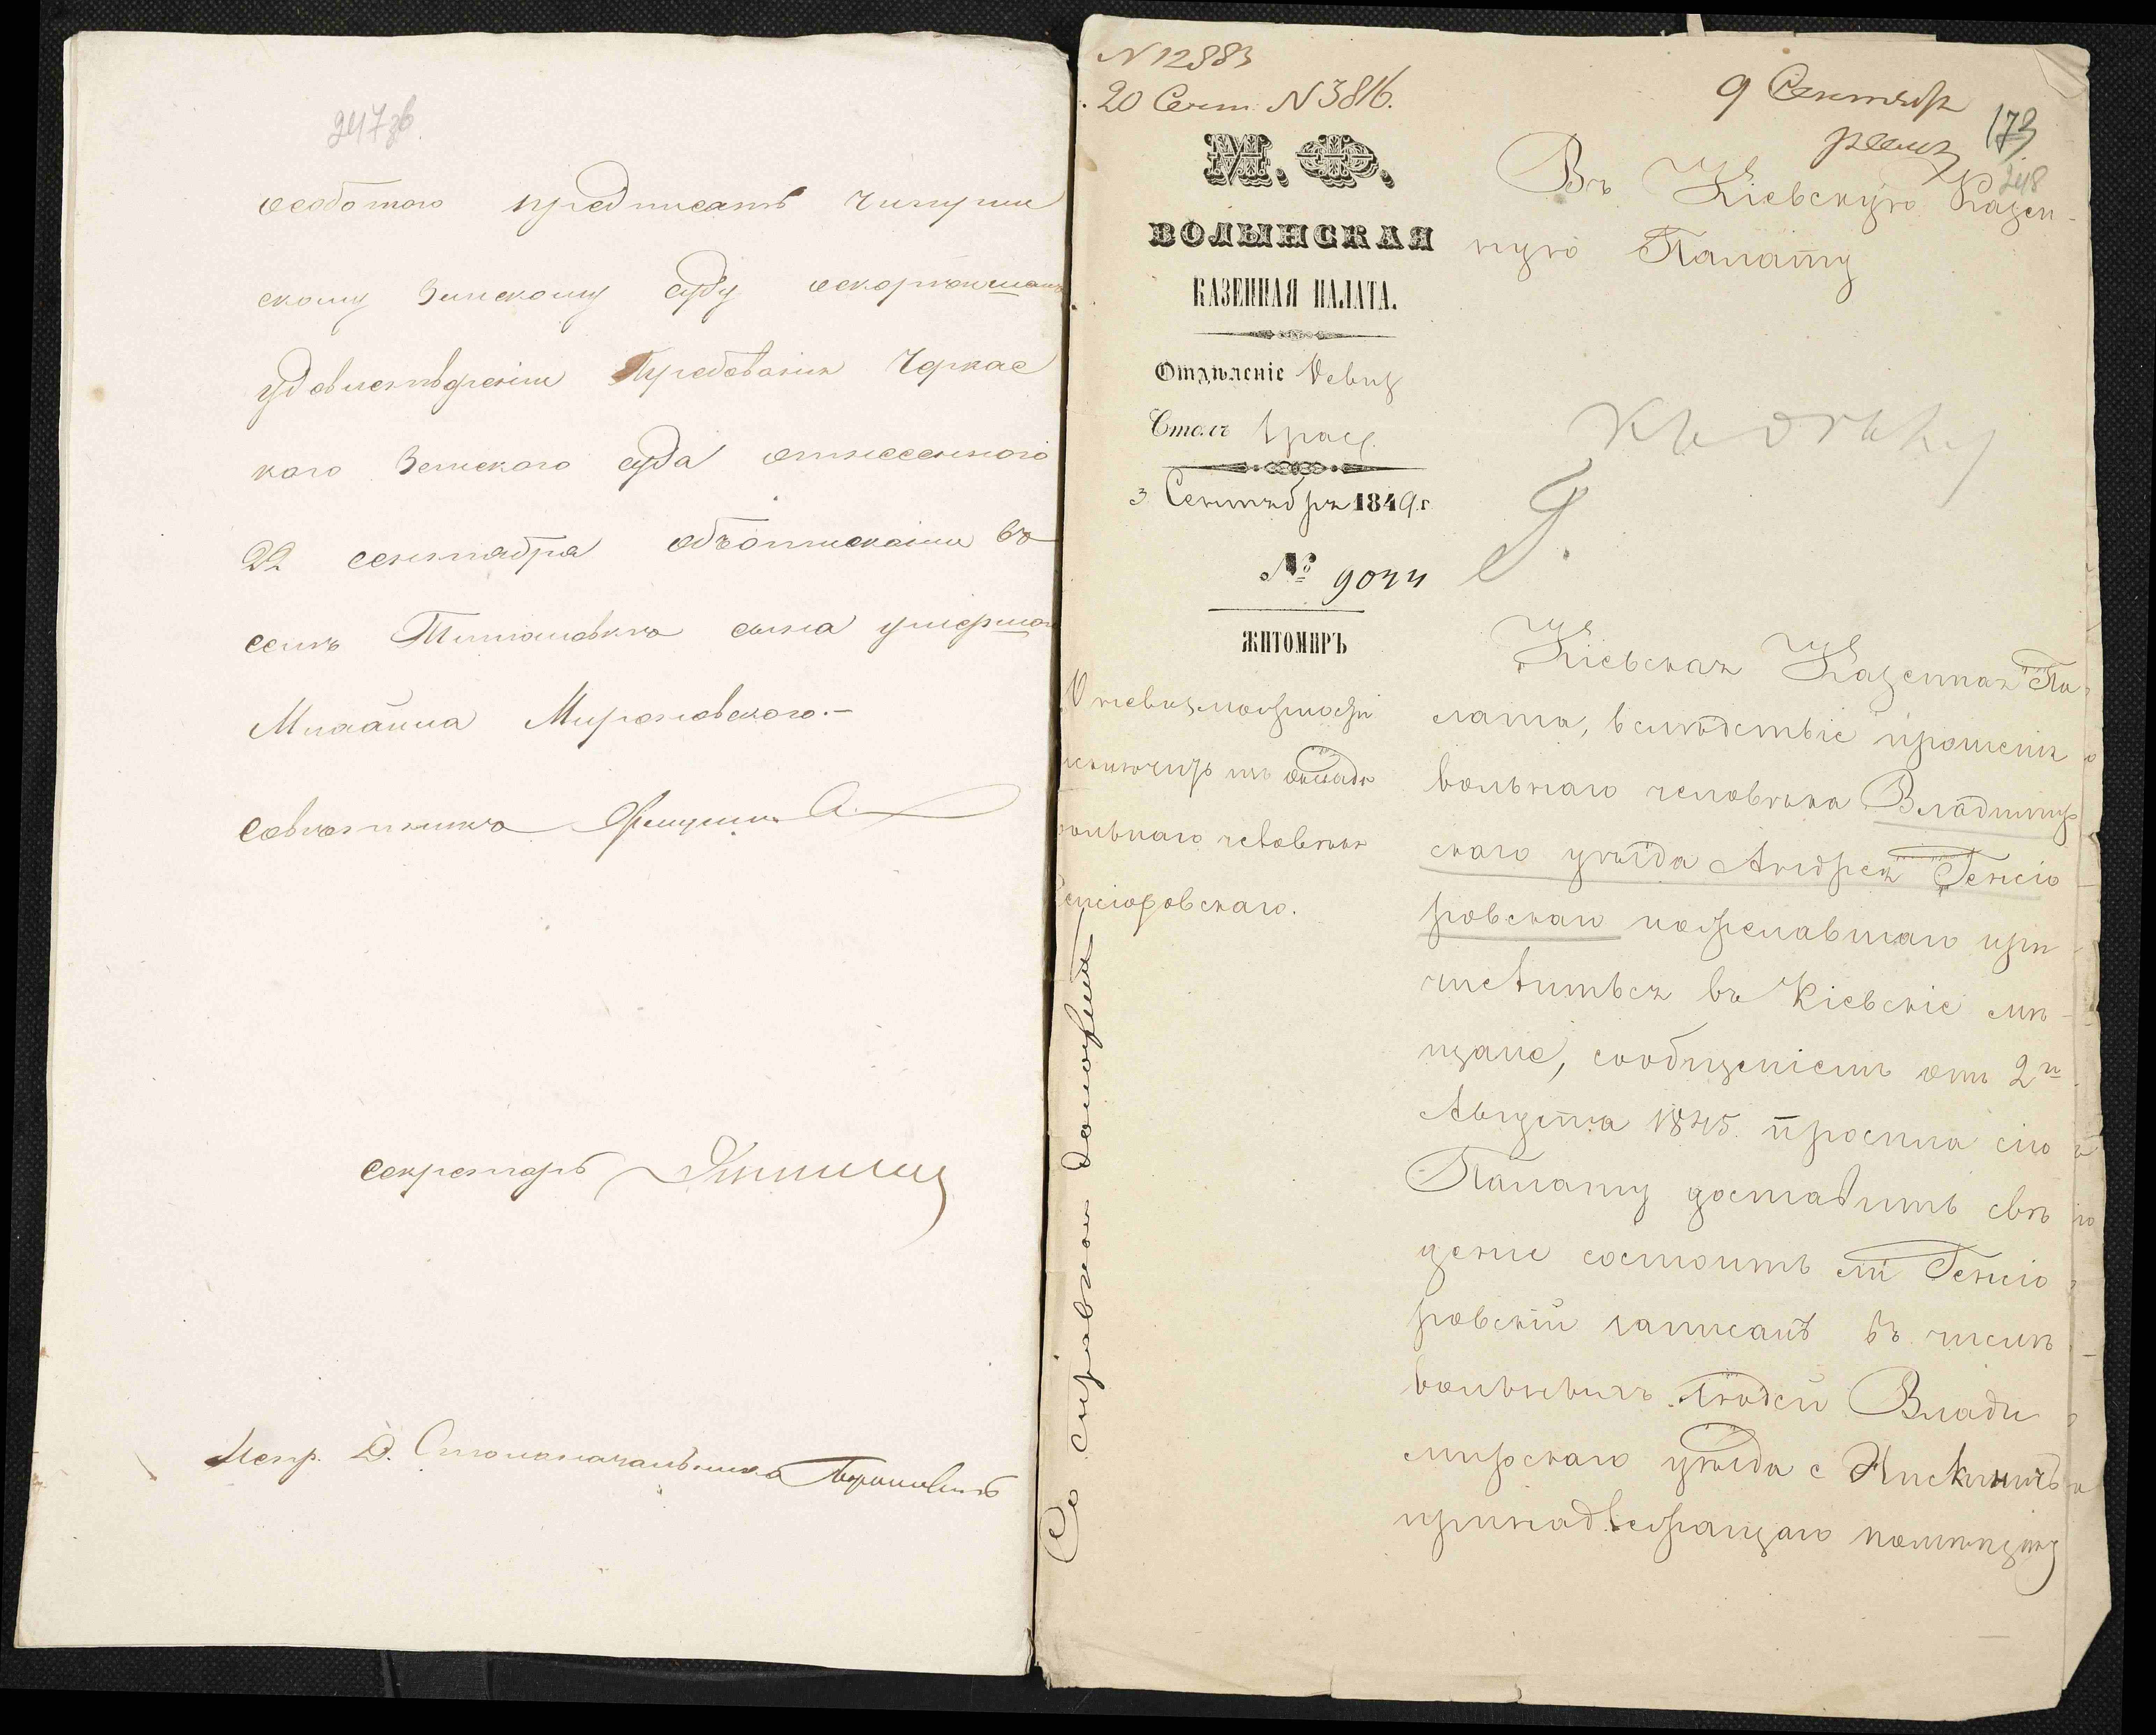 247зв.
особого предписать Чигрин
скому Земскому суду о скорейшемъ
удовлетвореніи требованія Черкас
каго Земскаго суда отнесенного
22 сентября объ отысканіи въ
семъ сына умершаго
Михаила Мироновского.-
Совѣтникъ
Секретарь
Испр. Д. Столоначальника
N 12883
20 Сент. N 3816.
9 Сентября
173
248
М. Ф.
ВОЛЫНСКАЯ
КАЗЕННАЯ ПАЛАТА.
Отдѣленіе Ревиз
Столъ
3 Сентября 1849.г
№ 9044
ЖИТОМИРЪ
О невозможности
исключить изъ оклада
вольнаго человѣка
Генсіоровскаго.
Со справкою доложить
Въ Кіевскую Казен-
ную Палату
Къ дѣлу
Кіевская Казенная Па-
лата, вслѣдствіе прошенія
вольнаго человѣка Владимір
скаго уѣзда Андрея Генсіо
ровскаго пожелавшаго при-
числиться въ Кіевскіе мѣ-
щане, сообщеніемъ отъ 2го
Августа 1845. просила сію
Палату доставить свѣ
деніе состоитъ ли Генсіо
ровскій записанъ въ числѣ
вольныхъ людей Влади
мірскаго уѣзда с Нискиничъ
принадлежащаго помѣщику